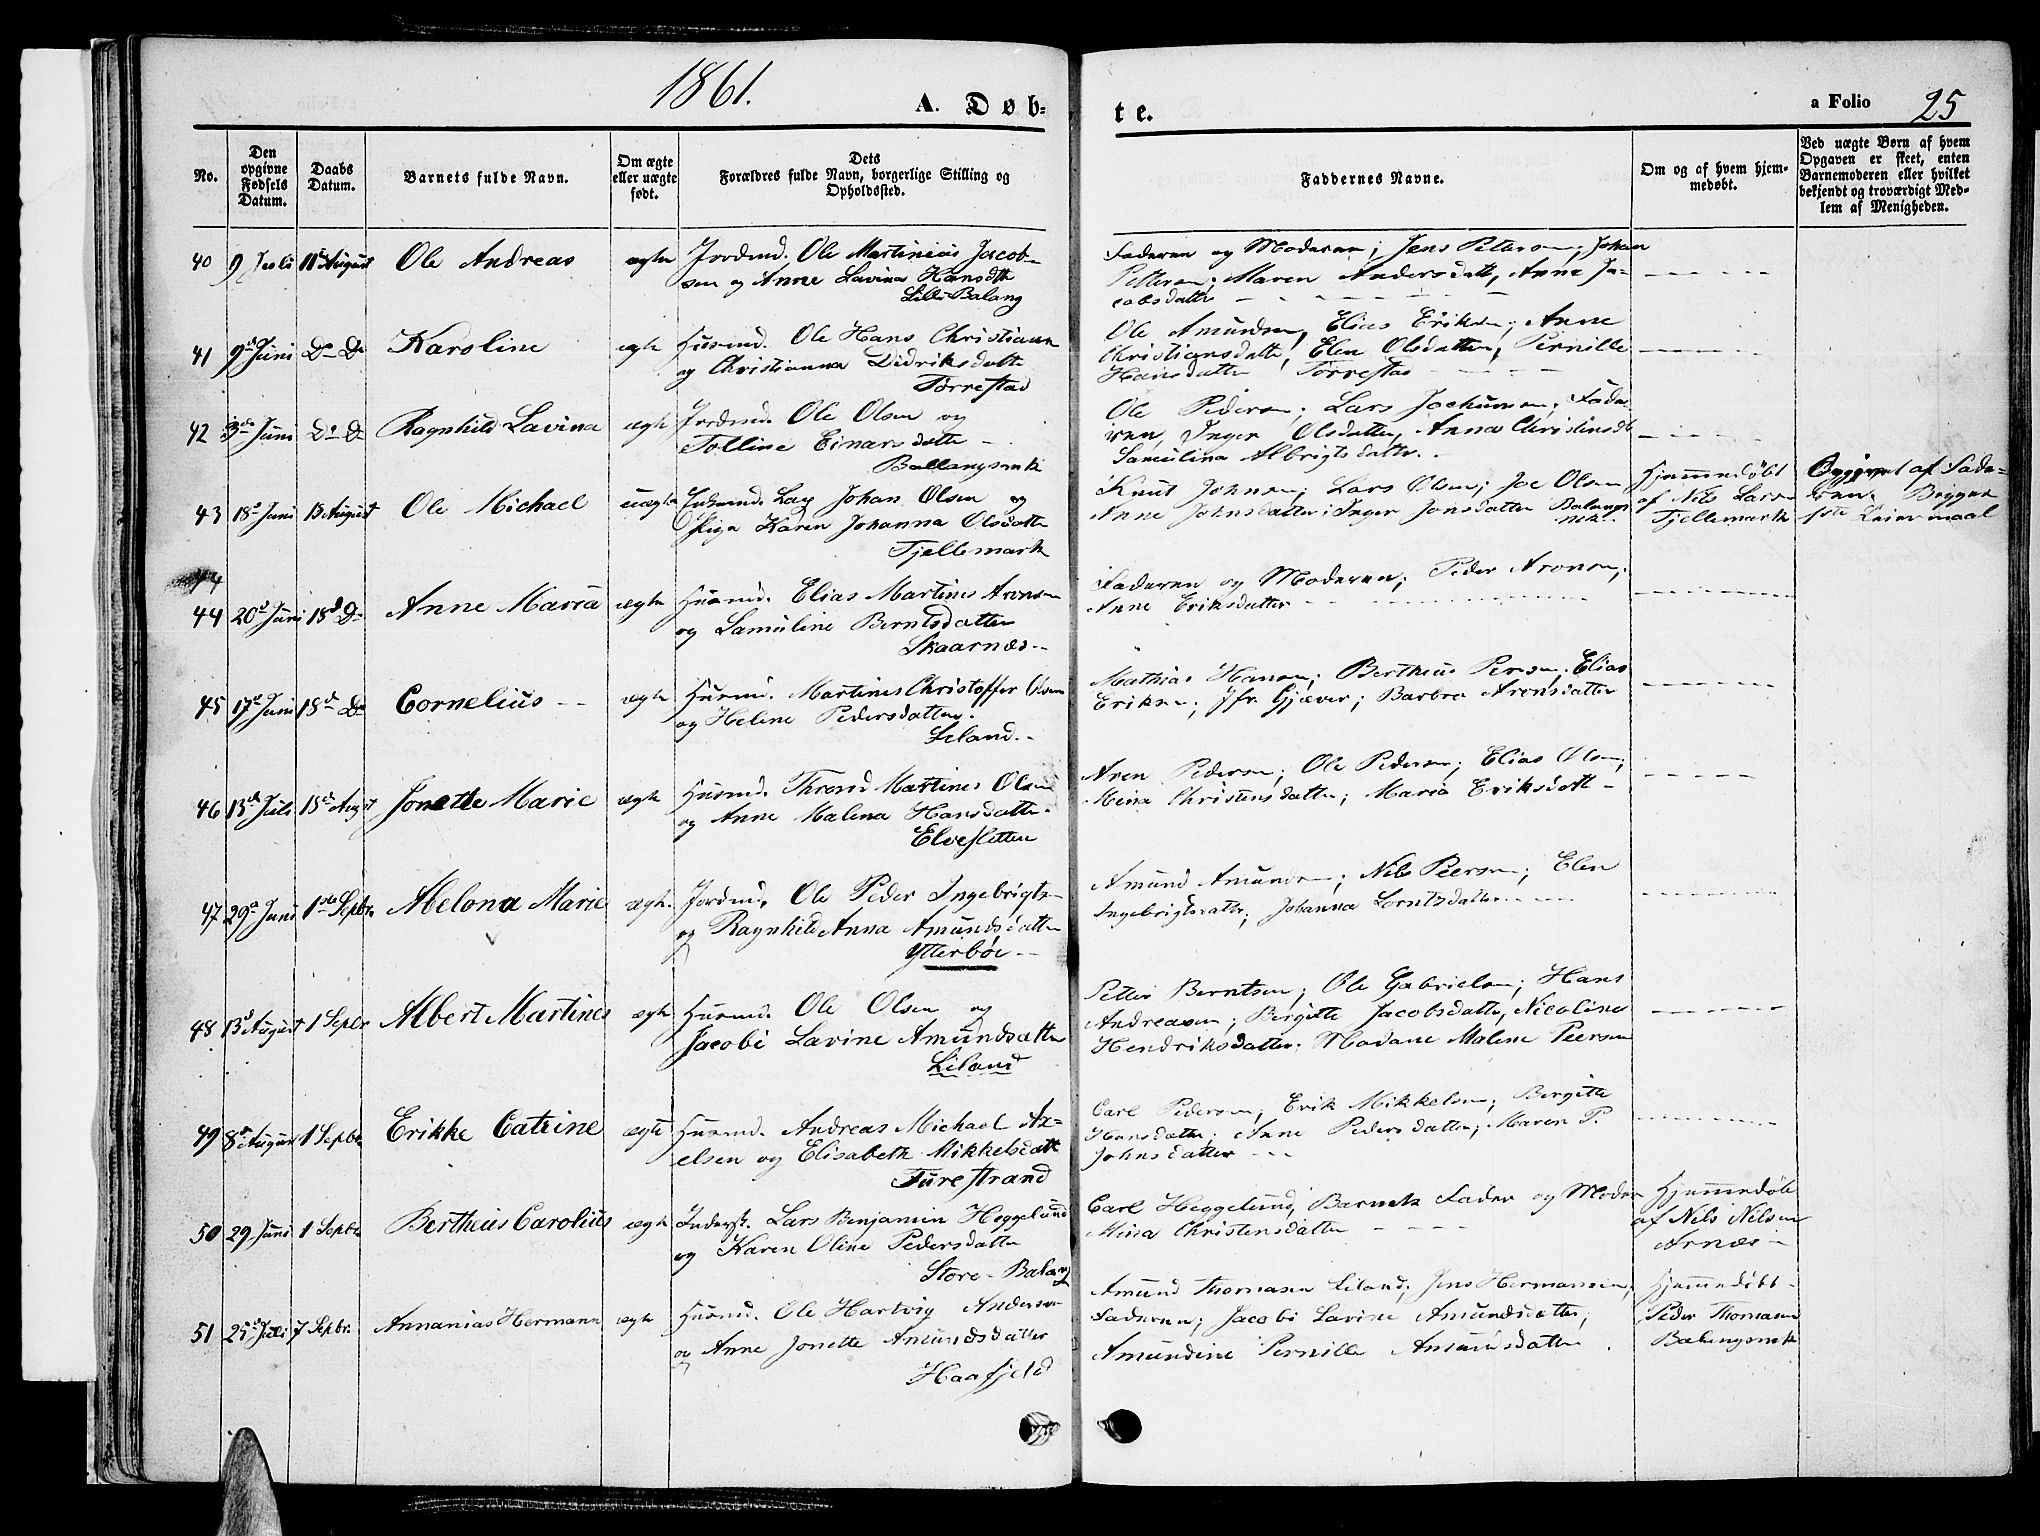 1861.
A. Døb=
te.
a Folio 25
No.
Den opgivne Fødsels Datum.
Daabs Datum.
Barnets fulde Navn.
Om ægte eller uægte født.
Dets Forældres fulde Navn, borgerlige Stilling og Opholdssted.
Faddernes Navne.
Om og af hvem hjem-medøbt.
Ved uægte Børn af hvem Opgaven er skeet, enten Barnemoderen eller hvilket bekjendt og troværdigt Med-lem af Menigheden.
40 9 Juli 11 August Ole Andreas ægte Jordmd. Ole Martinius Jacob-
sen og Anne Lavina Hansdtt
Lille Balang
Faderen og Moderen; Jens Petersen; Johan
Petersen; Maren Andersdatt, Anne Ja-
cobsdatter
41 9d Juni Do Do Karoline ægte Husmd. Ole Hans Christiansen
og Christianna Didriksdatte
Tørrestad
Ole Amundsen, Elias Eriksen; Anne
Christiansdatte, Elen Olsdatter, Pernille
Hansdatter Tørrestad
42 3de Juni Do Do Ragnhild Lavina ægte Jordmd. Ole Olsen og
Tolline Einarsdatte
Ballangsmk
Ole Pedersen; Lars Jochumsen, Fade-
ren, Inger Olsdatter, Anna Christinsdt
Samulina Albrigtsdatter.
43 18d Juni 13 August Ole Michael uægte Johan Olsen og
Pige Karen Johanna Olsdatter
Fjellemark
Knut Johnsen; Lars Olsen; Joe Olsen
Anne Johnsdatter; Inger Jonsdatter Balangs
mk
Hjemmedøbt
af Nils Larsen
Fjellemark
Opgivet af Fade-
ren. Begges
1ste Leiermaal
44
44 20d Juni 18d Do Anne Maria ægte Husmd. Elias Martines Aronsen
og Samuline Berntsdatter
Skaarnæs
Faderen og Moderen; Peder Aronsen;
Anne Eriksdatter
45 17d Juni 18d Do Cornelius ægte Husmd. Martines Christoffer Olsen
og Helene Pedersdatter.
Liland.
Mathias Hansen; Bertheus Persen; Elias
Eriksen; Jfr. Gjæver; Barbra Aronsdatter
46 13d Juli 18d August Jonette Marie ægte Husmd. Thrond Martines Olsen
og Anne Malena Hansdatter
Elvesletten
Aren Pedersen; Ole Pedersen; Elias Olsen;
Meina Christensdatter; Maria Eriksdatt
47 29d Juni 1ste Sepbr. Abelona Marie ægte Jordmd. Ole Peder Ingebrigts-
og Ragnhild Anna Amundsdatter
Ytterbøe
Amund Amundsen; Nils Peersen; Elen
Ingebrigtsdatter; Johanna Lorntsdatter
48 13d August 1 Sepbr Albert Martines ægte Husmd. Ole Olsen og
Jacobi Lavine Amundsdatter
Liland
Petter Berntsen; Ole Gabrielsen; Hans
Andreasen; Birgitte Jacobsdatter, Nicoline
Hendriksdatter; Madame Malene Peersen
49 8d August 1 Sepbr Erikke Catrine ægte Husmd. Andreas Michael Ax-
elsen og Elisabeth Mikkelsdatt
Furestrand
Carl Pedersen; Erik Mikkelsen; Birgitte
Hansdatter; Anne Pedersdatter; Maren P.
Johnsdatter
50 29 Juni 1 Sepbr Bertheus Carolius ægte Inderst. Lars Benjamin Heggelund
og Karen Oline Pedersdatter
Store-Balang
Carl Heggelund, Barnets Fader og Moder
Mina Christensdatter
Hjemmedøbt
af Nils Nilsen
Arnæs
51 25d Juli 7 Sepbr. Annanias Hermann ægte Husmd. Ole Hartvig Andersen
og Anne Jonette Amundsdatter
Haafjeld
Amund Thomasen Liland; Jens Hermansen;
Faderen; Jacobi Lavine Amundsdatter;
Amundine Pernille Amundsdatter.
Hjemmedøbt
Peder Thomasen
Balangsmk